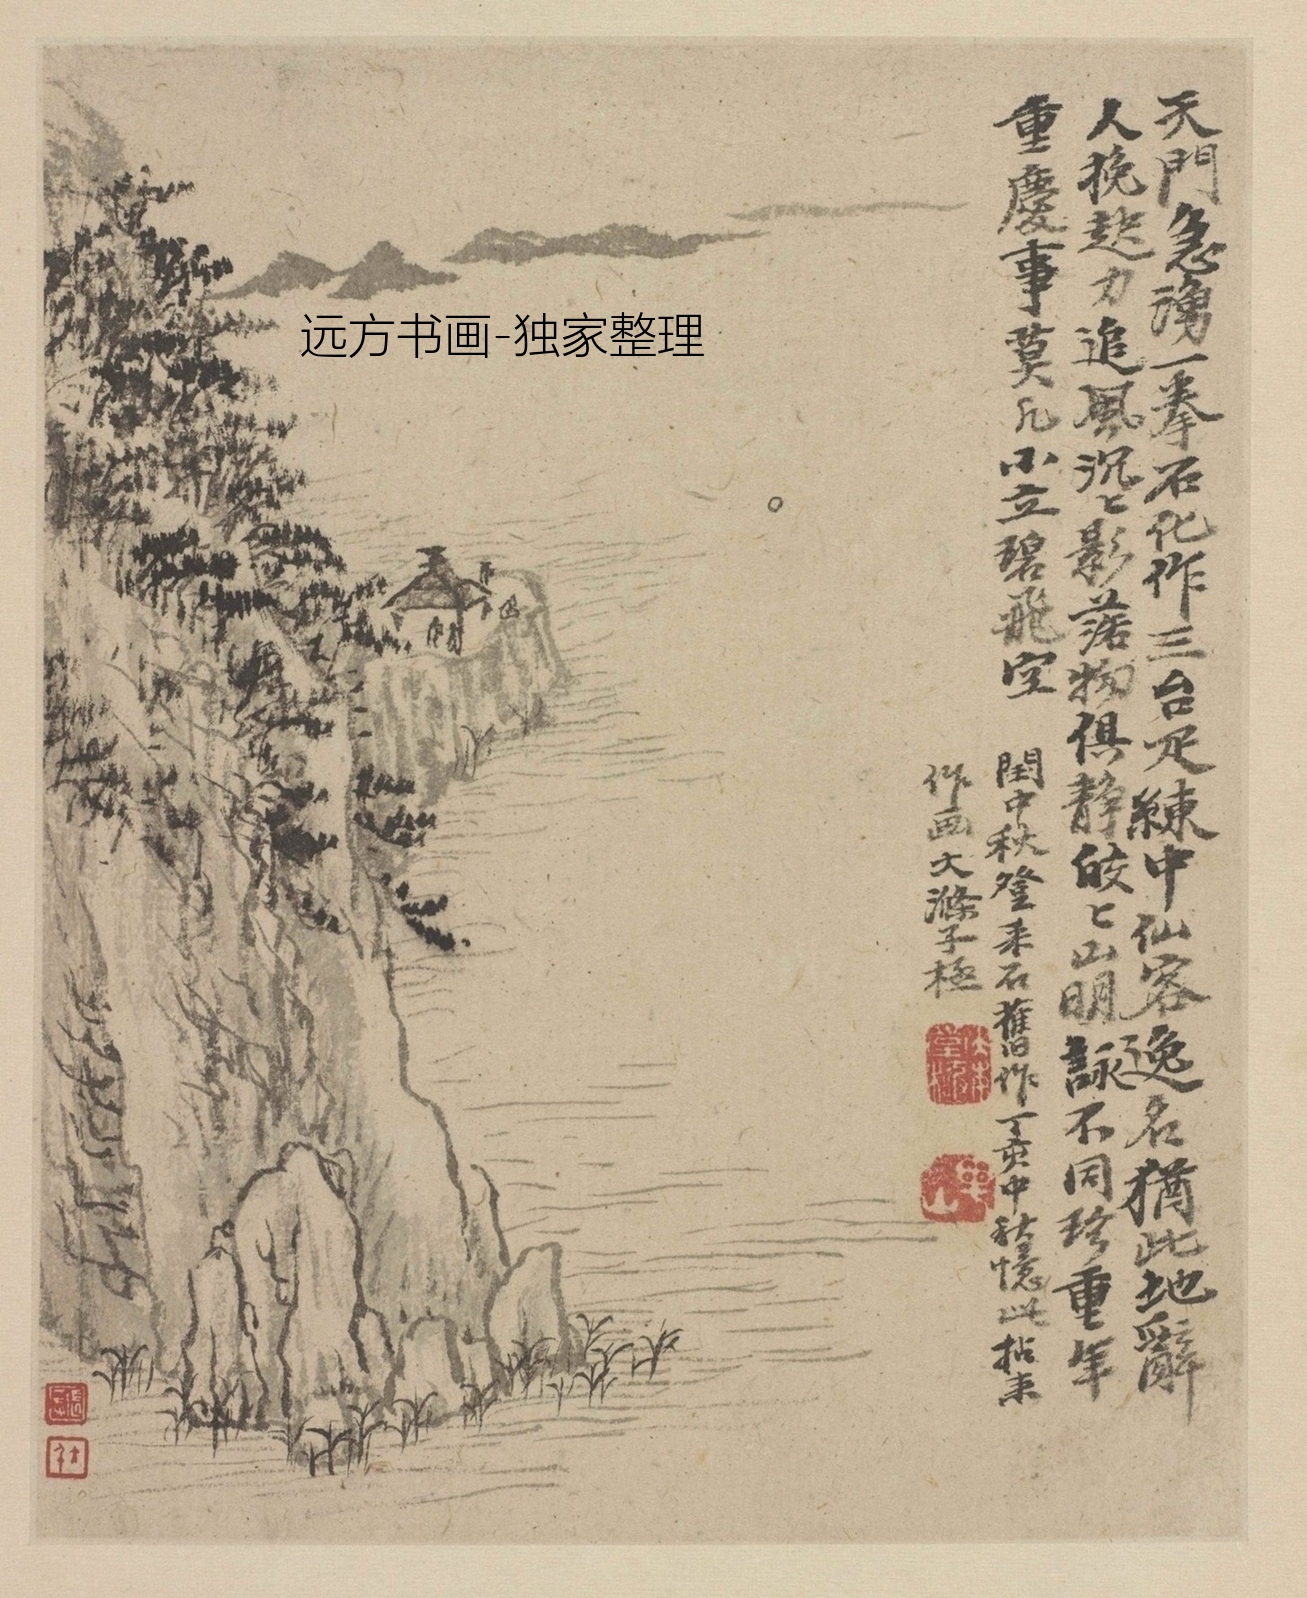 天門急湧一拳石化作三台足練中仙客逸名猶此地辭
人挽起力追風沉〻影落物俱静皎〻山明詠不同珍重年
重慶事莫凡小立碧飛空
閏中秋登采石舊作丁亥中秋憶此拈來
作画大滌子極
远方书画-独家整理